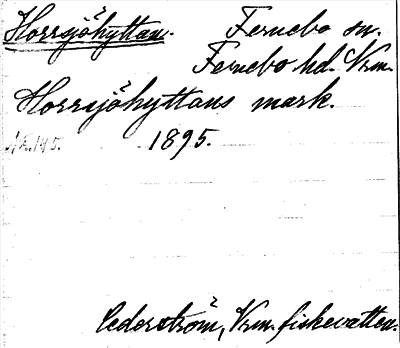 Horrsjöhyttan. Fernebo sn.
Fernebo hd. Vrm.
Horrsjöhyttans mark.
1895.
Cederström, Vrm. fiskevatten.